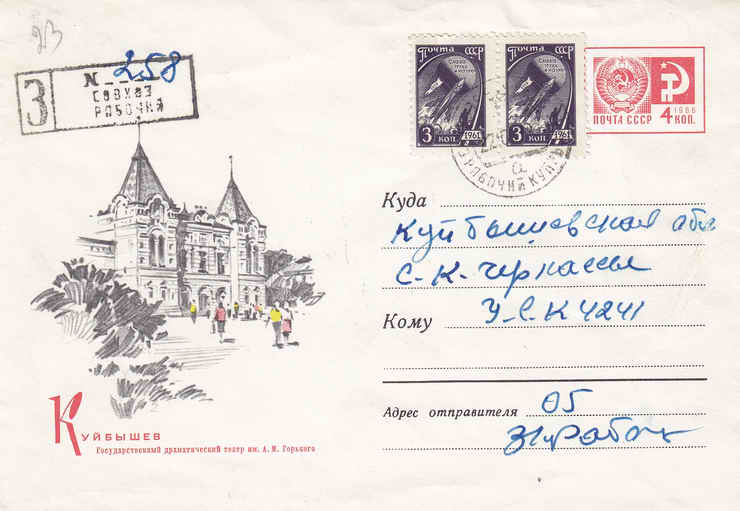 23
З
N 258
СОВХОЗ
РАБОЧИЙ
ПОЧТА СССР
СЛАВА
ТРУДУ
И НАУКЕ
3 КОП. 1961
ПОЧТА СССР
СЛАВА
ТРУДУ
И НАУКЕ
3 КОП. 1961
1966
ПОЧТА СССР 4 КОП.
РАБОЧИЙ КУЙ
а
Куда
Куйбышевская обл
с-к-Черкассы
Кому У-С.К 4241
Адрес отправителя 05
КУЙБЫШЕВ
Государственный драматический театр им. А. М. Горького